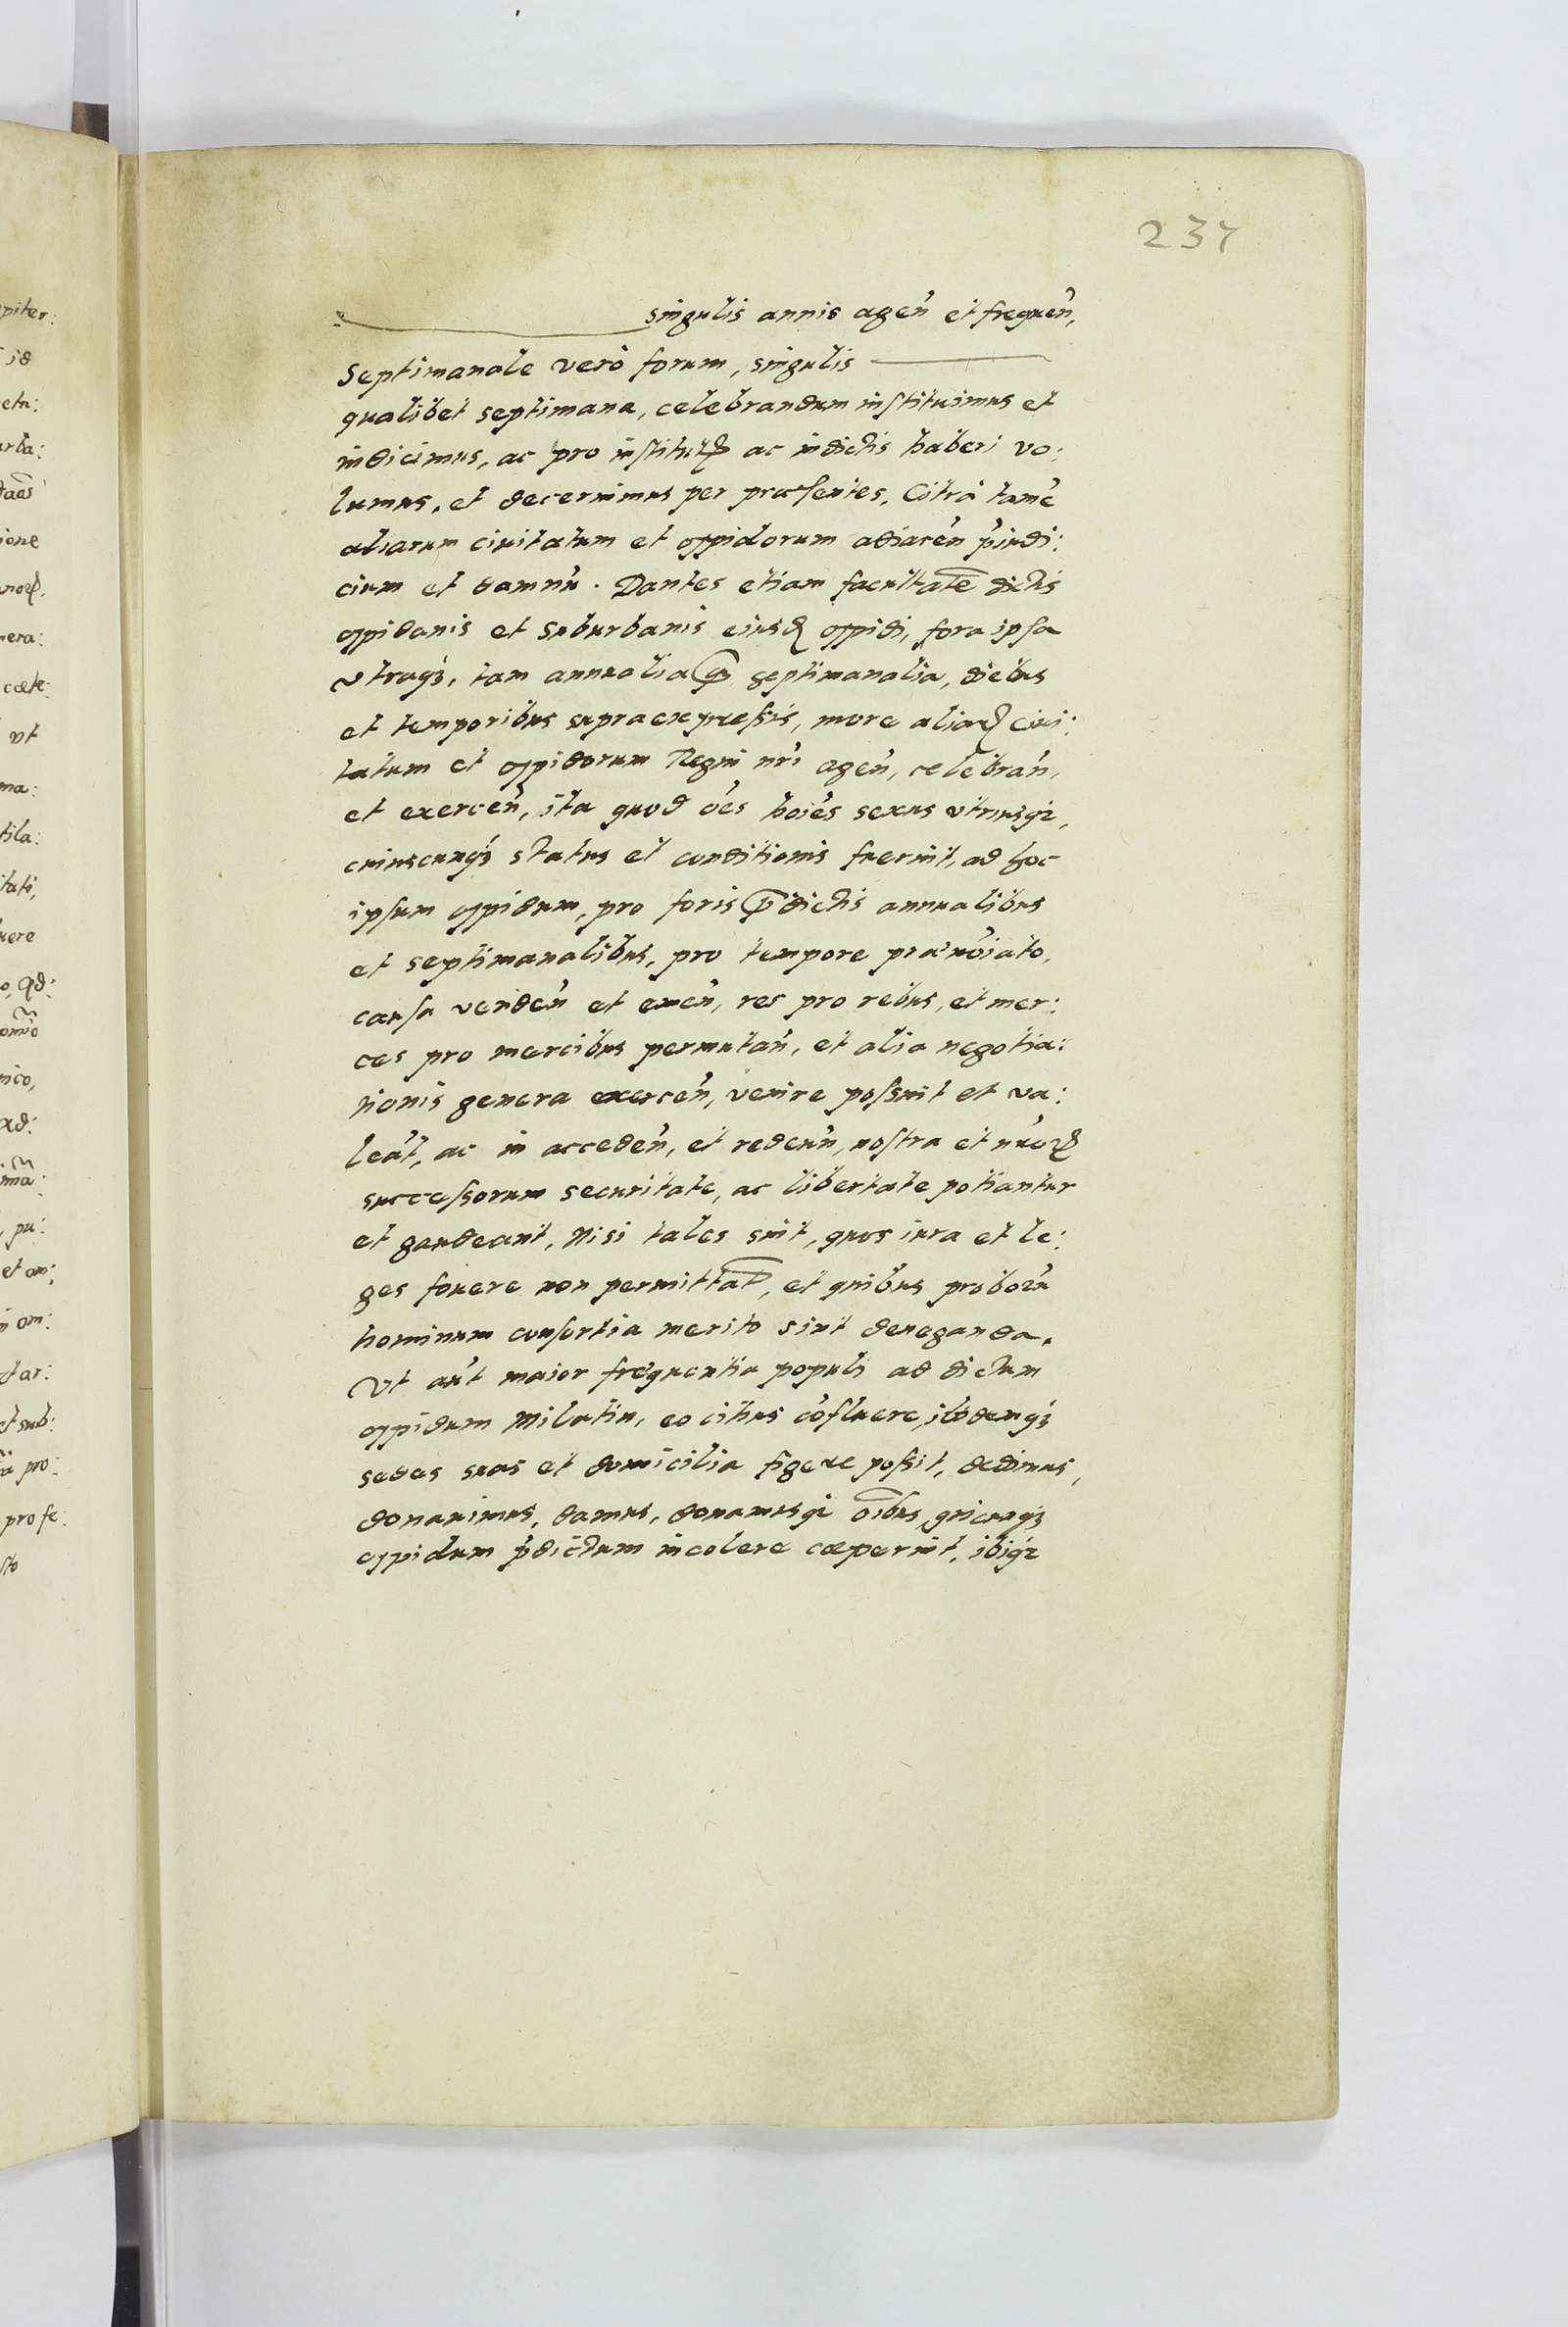 237
singulis annis ageń et frequeń,
Septimanale verò forum, singulis
qualibet septimana, celebrandum instituimus et
indicimus, ac pro institutꝭ ac indictis haberi vo:
lumus, et decernimus per præsentes. Citrà tamē
aliarum ciuitatum et oppidorum adiaceń p̄iudi:
cium et damnū. Dantes etiam facultatē dictis
oppidanis et suburbanis eiusdꝭ oppidi, fora ipsa
vtraqꝫ, tam annualia qꝫ septimanalia, diebus
et temporibus supraexpressis, more aliaꝝ ciui:
tatum et oppidorum Regni nr̄i ageń, celebrań,
et exerceń, ita quod oēs hoīēs sexus vtriusqꝫ,
cuiuscunqꝫ status et conditionis fuerint, ad hoc
ipsum oppidum, pro foris p̄dictis annualibus
et septimanalibus, pro tempore prænoīato,
causa vendeń et emeń, res pro rebus, et mer:
ces pro mercibus permutań, et alia negotia:
tionis genera exerceń, venire possint et va:
leāt, ac in accedeń, et redeuń, nostra et nr̄oꝝ
successorum securitate, ac libertate potiantur
et gaudeant, Nisi tales sint, quos iura et le:
ges fouere non permittāt, et quibus proboꝝ
hominum consortia merito sint deneganda.
Vt aūt maior frequentia populi ad dictum
oppidum Milatin, eo citius cōfluere, ibidemqꝫ
sedes suas et domicilia figere possit, dedimus,
donauimus, damus, donamusqꝫ oībus, quicunqꝫ
oppidum p̄dictum incolere cæperint, ibiqꝫ